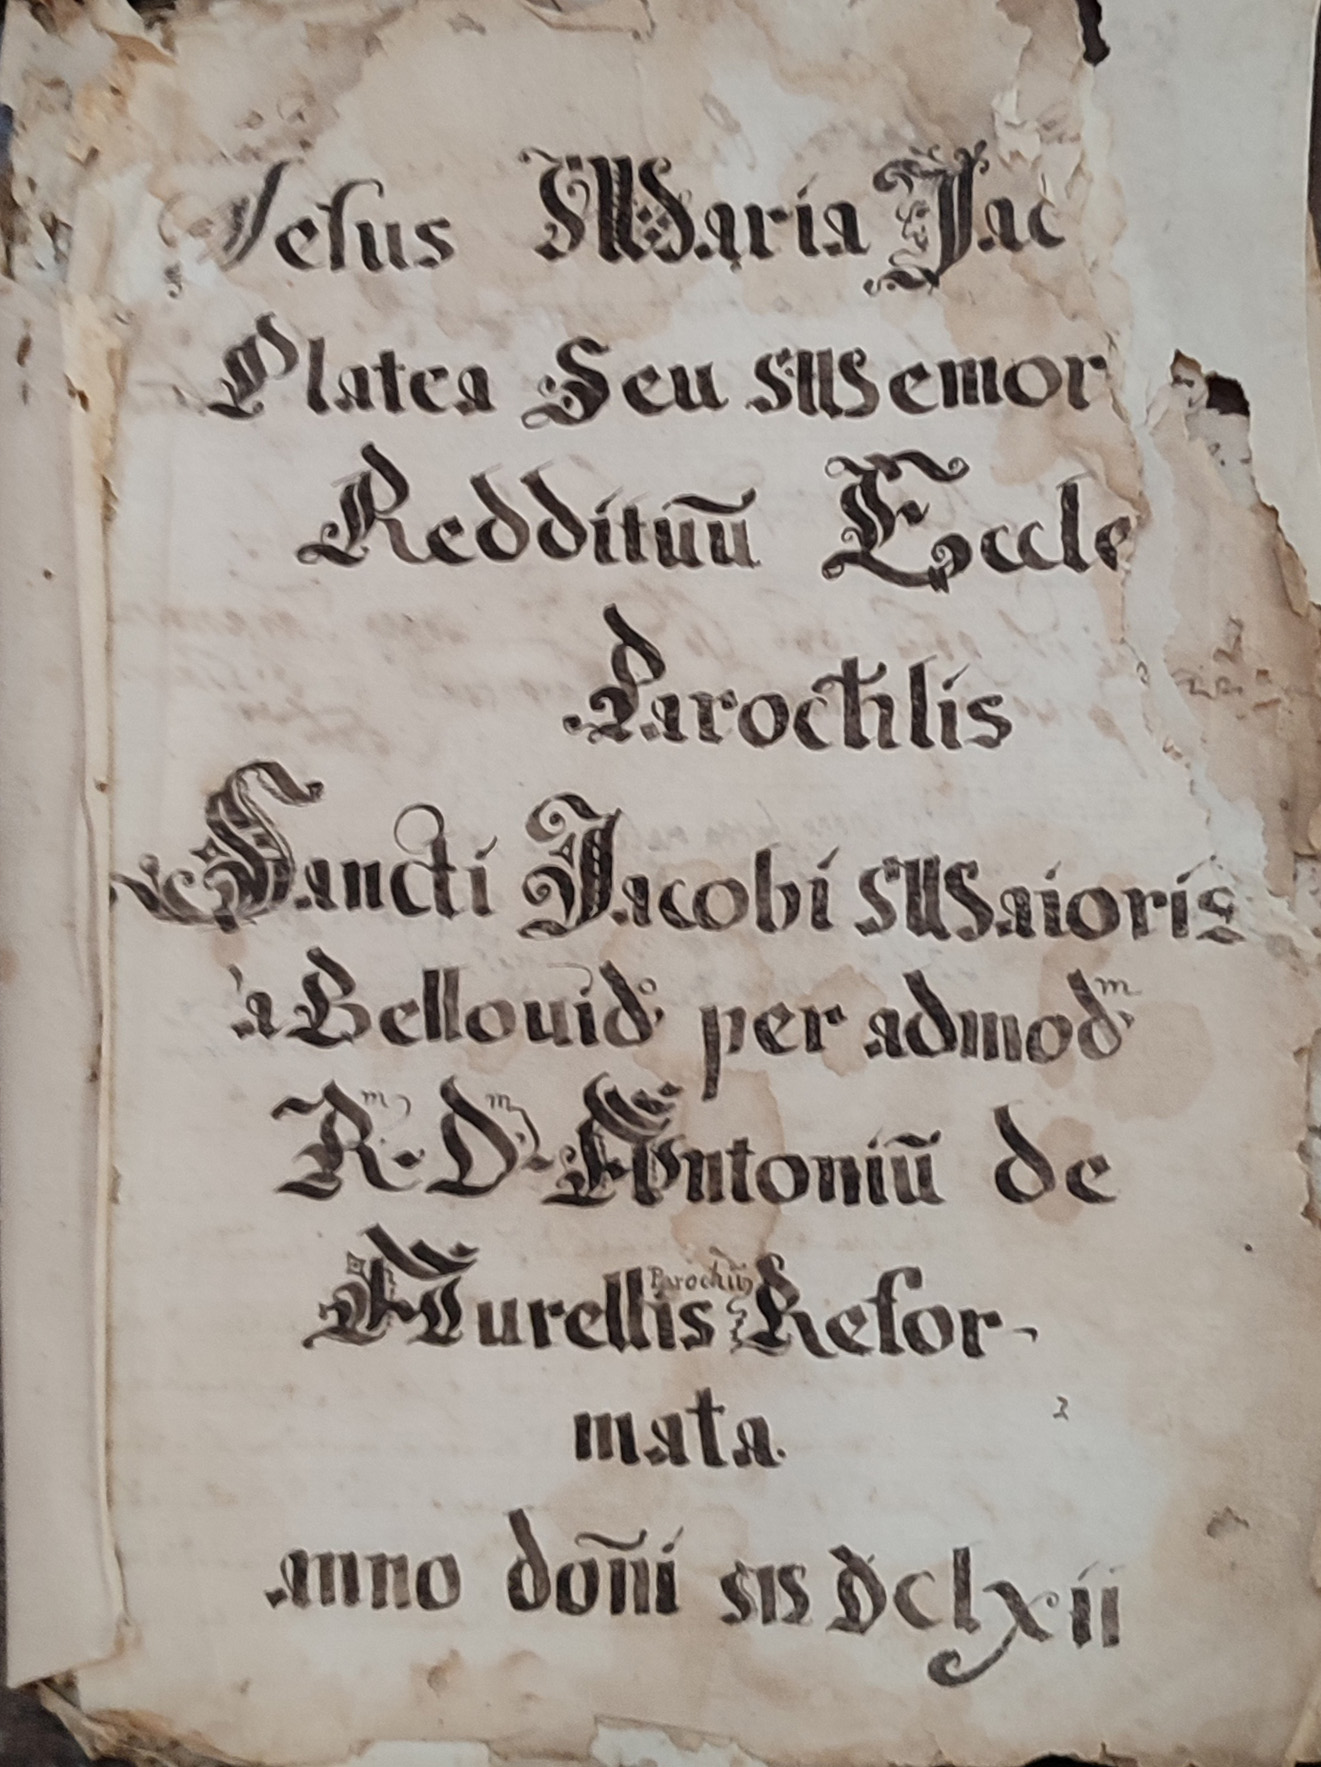 Jesus Maria Jac
Platea Seu Memor
Reddituū Eccle
Parochlis
Sancti Jacobi Maioris
a Bellouid.º per admod.ᵐ
R.ᵐ D.ᵐ Antoniū de
Turellis Parochū Refor-
mata.
anno doñi MDclxii